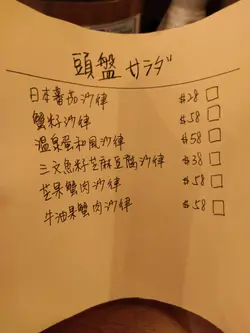 頭盤 サラダ
日本蕃茄沙律 $28 □
蟹籽沙律 $58 □
溫泉蛋和風沙律 $58 □
三文魚籽芝麻豆腐沙律 $38 □
芒果蟹肉沙律 $58 □
牛油果蟹肉沙律 $58 □